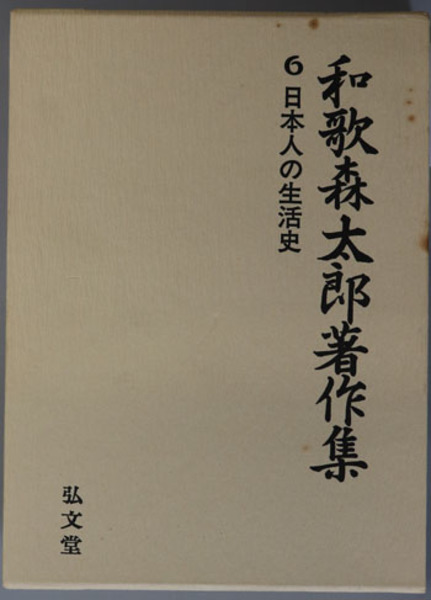 和歌森太郎著作集
6 日本人の生活史
弘文堂